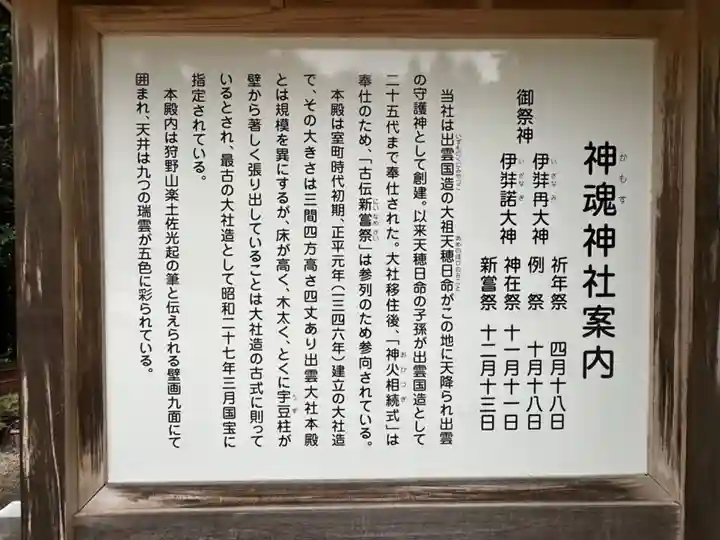 神魂神社案内
かもす
御祭神
伊弉冉大神
いざなみ
伊弉諾大神
いざなぎ
祈年祭 四月十八日
例祭 十月十八日
神在祭 十一月十一日
新嘗祭 十二月十三日
当社は出雲国造の大祖天穂日命がこの地に天降られ出雲
の守護神として創建。以来天穂日命の子孫が出雲国造として
二十五代まで奉仕された。大社移住後、「神火相続式」は
おひつぎ
奉仕のため、「古伝新嘗祭」は参列のため参向されている。
にいなめさい
本殿は室町時代初期、正平元年(一三四六年)建立の大社造
で、その大きさは三間四方高さ四丈あり出雲大社本殿
とは規模を異にするが、床が高く、木太く、とくに宇豆柱が
うず
壁から著しく張り出していることは大社造の古式に則って
いるとされ、最古の大社造として昭和二十七年三月国宝に
指定されている。
本殿内は狩野山楽土佐光起の筆と伝えられる壁画九面にて
囲まれ、天井は九つの瑞雲が五色に彩られている。